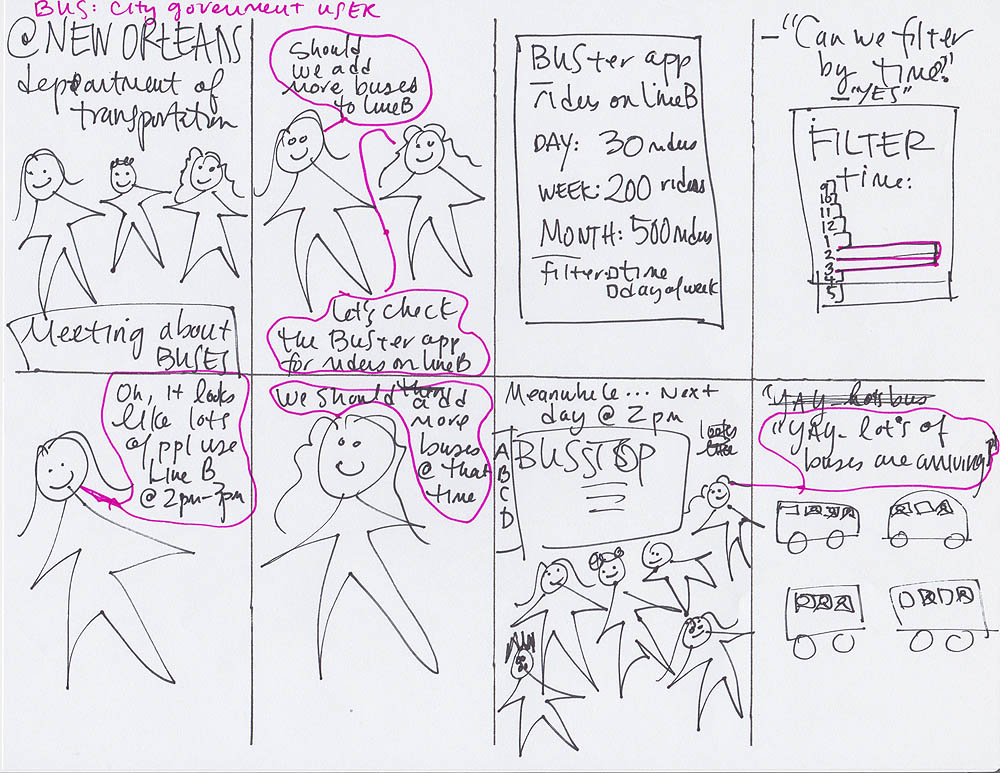 BUS: city government USER
@NEW ORLEANS
department of
transportation
Meeting about
BUSES
Should
we add
more buses
to line B
Let's check
the BUSter app
for riders on line B
BUSter app
riders on line B
DAY: 30 riders
WEEK: 200 riders
MONTH: 500 riders
filter: time
day of week
- "Can we filter
by time?"
- "YES"
FILTER
time:
9
10
11
12
1
2
3
4
5
Oh, it looks
like lots
of ppl use
Line B
@ 2pm-3pm
We should then add
more
buses
@ that
time
Meanwhile... Next
day @ 2pm
BUSSTOP
A
B
C
D
"YAY
bus
"YAY- lot's of
buses are arriving!"